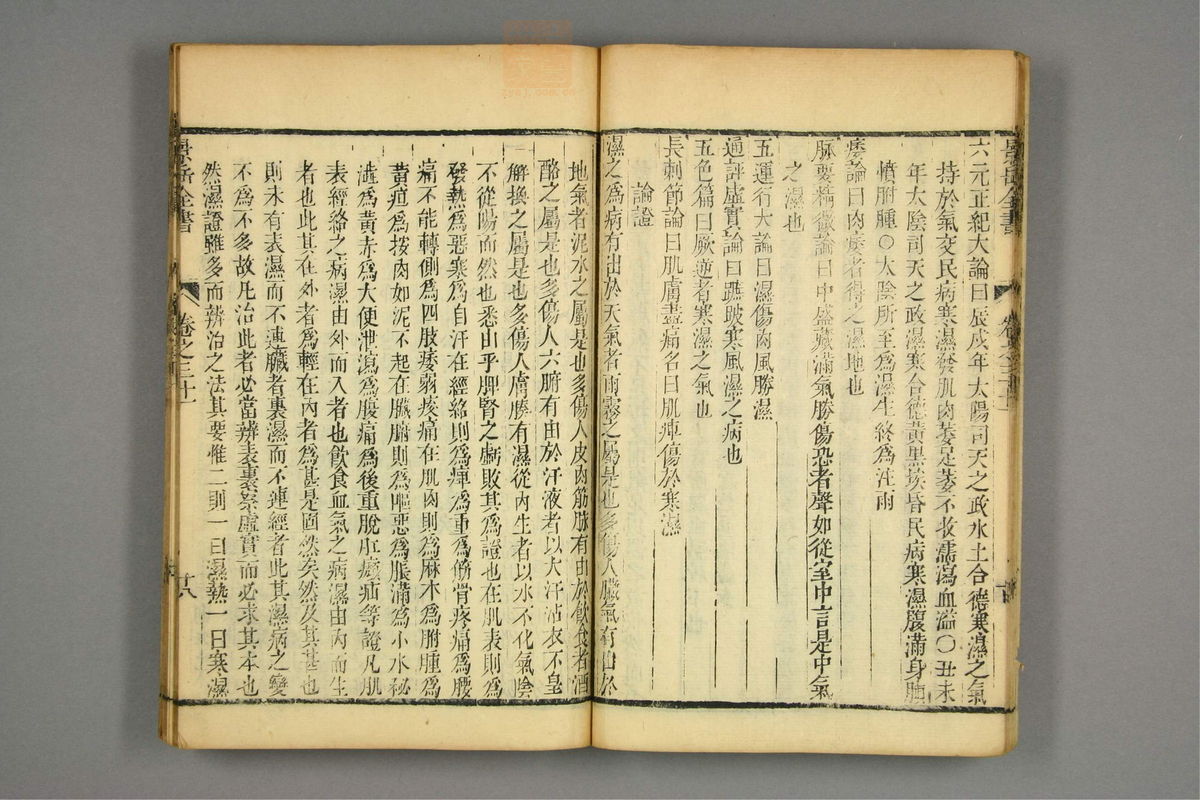 六元正紀大論曰辰戌年太陽司天之政水土合德寒濕之氣
持於氣交民病寒濕發肌肉萎足痿不收濡瀉血溢○丑未
年太陰司天之政濕寒合德黃黑埃昏民病寒濕腹滿身䐜
憤胕腫○太陰所至為濕生終為注雨
痿論曰肉痿者得之濕地也
脉要精微論曰中盛藏滿氣勝傷恐者聲如從室中言是中氣
之濕也
五運行大論曰濕傷肉風勝濕
通評虛實論曰蹠跛寒風濕之病也
五色篇曰厥逆者寒濕之氣也
長刺節論曰肌膚盡痛名曰肌痺傷於寒濕
論證
濕之為病有出於天氣者雨霧之屬是也多傷人臟氣有出於
地氣者泥水之屬是也多傷人皮肉筋脉有由於飲食者酒
酪之屬是也多傷人六腑有由於汗液者以大汗沾衣不皇
解換之屬是也多傷人膚腠有濕從內生者以水不化氣陰
不從陽而然也悉由乎脾腎之虧敗其為證也在肌表則為
發熱為惡寒為自汗在經絡則為痺為重為筋骨疼痛為腰
痛不能轉側為四肢痿弱痠痛在肌肉則為麻木為胕腫為
黃疸為按肉如泥不起在臟腑則為嘔惡為脹滿為小水秘
濇為黃赤為大便泄瀉為腹痛為後重脫肛㿗疝等證凡肌
表經絡之病濕由外而入者也飲食血氣之病濕由內而生
者也此其在外者為輕在內者為甚是固然矣然及其甚也
則未有表濕而不連臟者裏濕而不連經者此其濕病之變
不為不多故凡治此者必當辨表裏察虛實而必求其本也
然濕證雖多而辨治之法其要惟二則一曰濕熱一曰寒濕
景岳全書
卷之三十一
廿八